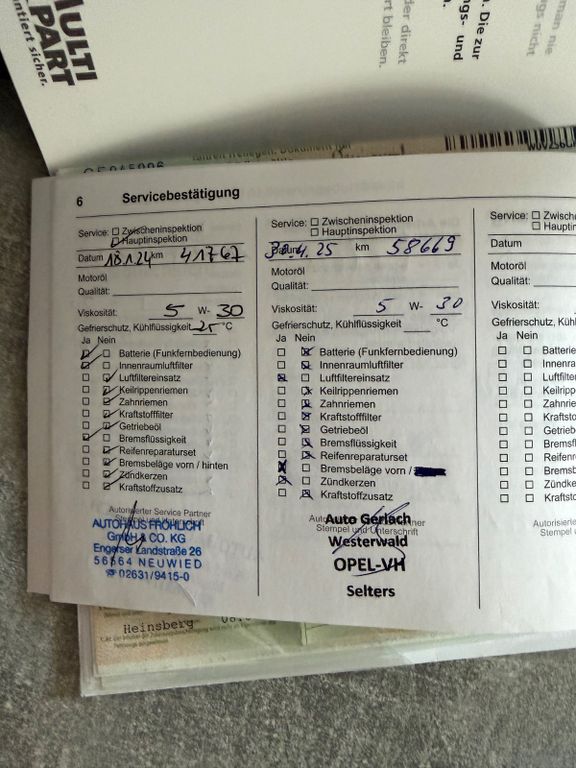 MULTI
PART
ntiert sicher.
der direkt
rt bleiben.
n. Die zur
ngs- und
man nie
gs nicht
6 Servicebestätigung
Service: Zwischeninspektion
Hauptinspektion
Datum 18.1.24 km 41767
Motoröl
Qualität:
Viskosität: 5 W- 30
Gefrierschutz, Kühlflüssigkeit -25 °C
Ja Nein
Batterie (Funkfernbedienung)
Innenraumluftfilter
Luftfiltereinsatz
Keilrippenriemen
Zahnriemen
Kraftstofffilter
Getriebeöl
Bremsflüssigkeit
Reifenreparaturset
Bremsbeläge vorn / hinten
Zündkerzen
Kraftstoffzusatz
Autorisierter Service Partner
Stempel und Unterschrift
AUTOHAUS FRÖHLICH
GmbH & CO. KG
Engerser Landstraße 26
56564 NEUWIED
☎ 02631/9415-0
Service: Zwischeninspektion
Hauptinspektion
Datum 30.4.25 km 58669
Motoröl
Qualität:
Viskosität: 5 W- 30
Gefrierschutz, Kühlflüssigkeit °C
Ja Nein
Batterie (Funkfernbedienung)
Innenraumluftfilter
Luftfiltereinsatz
Keilrippenriemen
Zahnriemen
Kraftstofffilter
Getriebeöl
Bremsflüssigkeit
Reifenreparaturset
Bremsbeläge vorn /
Zündkerzen
Kraftstoffzusatz
Stempel und Unterschrift
Auto Gerlach
Westerwald
OPEL-VH
Selters
Service: Zwischen
Hauptin
Datum
Motoröl
Qualität:
Viskosität:
Gefrierschutz, Kühlflüs
Ja Nein
Batterie
Innenrau
Luftfilter
Keilrippe
Zahnrie
Kraftsto
Getriebe
Bremsfl
Reifenre
Bremsbe
Zündker
Kraftsto
Autorisierte
Stempel
Heinsberg